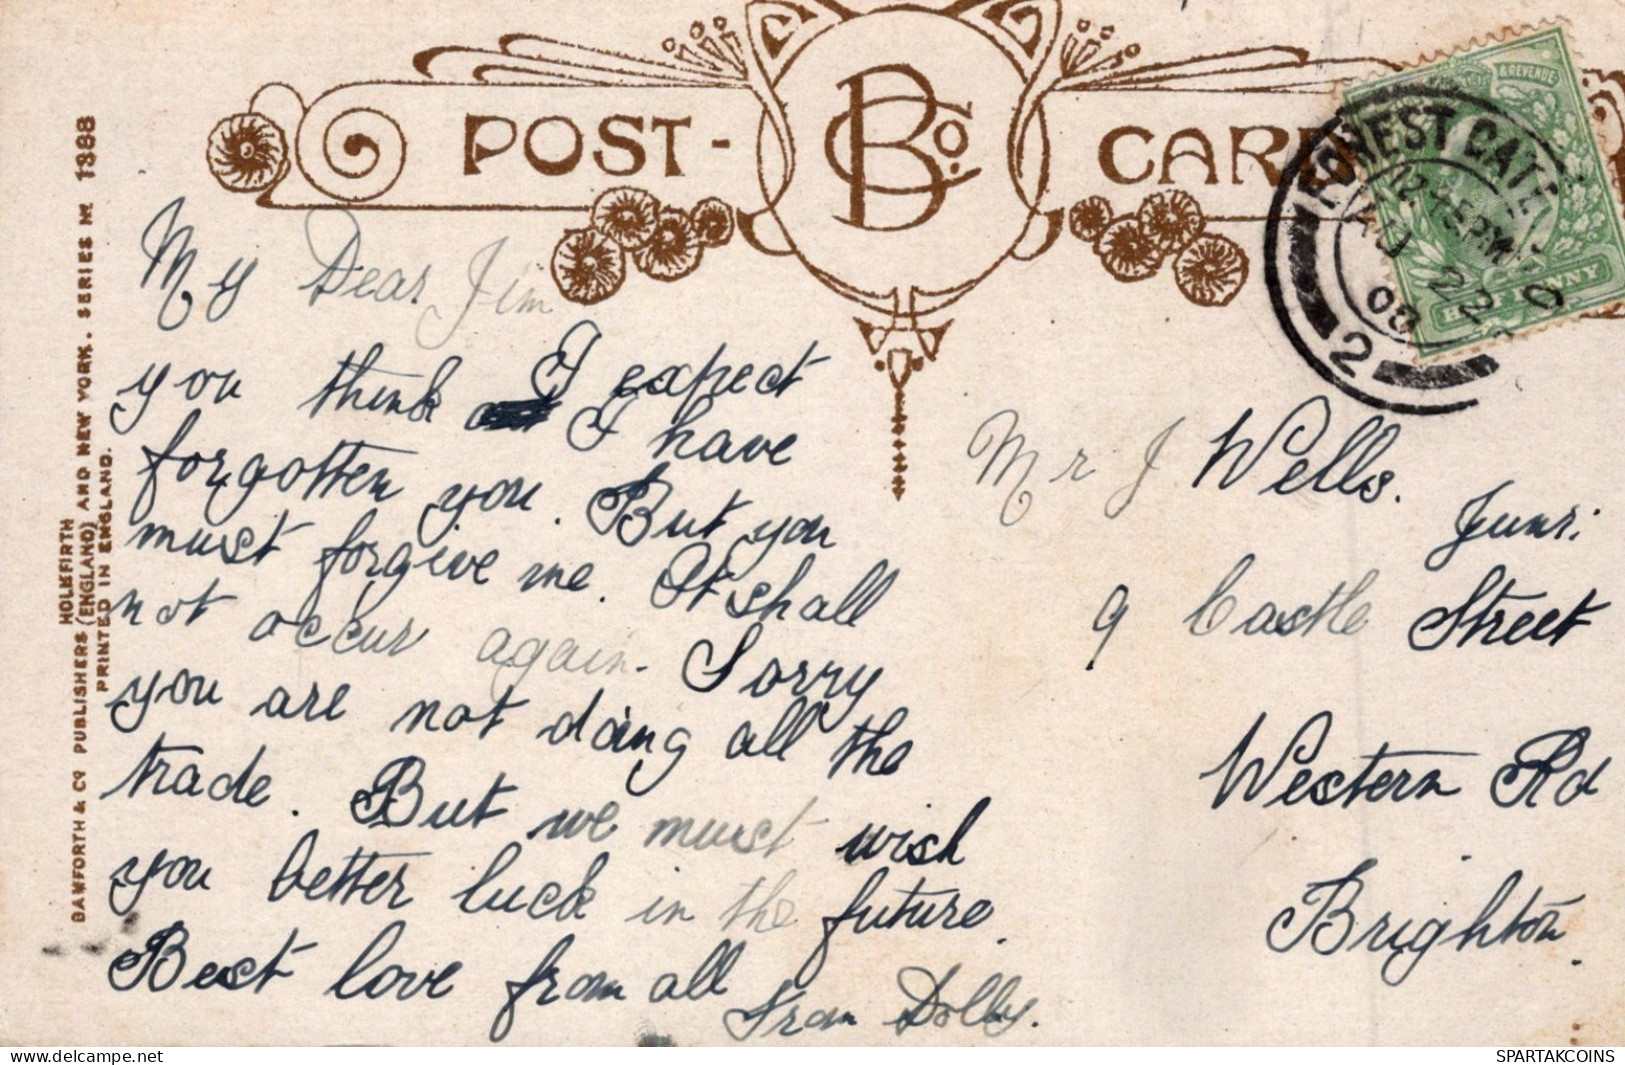 POST-CARD
B Co.
& REVENUE
FOREST GATE
AU 22
2
My Dear Jim
I expect
you think I have
forgotten you. But you
must forgive me. It shall
not occur again. Sorry
you are not doing all the
trade. But we must wish
you better luck in the future.
Best love from all
From Dolly.
Mr J Wells.
Junr:
9 Castle Street
Western Rd
Brighton.
HOLMFIRTH
BAMFORTH & Co PUBLISHERS (ENGLAND) AND NEW YORK. SERIES No 1388
PRINTED IN ENGLAND.
https://www.delcampe.net
SPARTAKCOINS